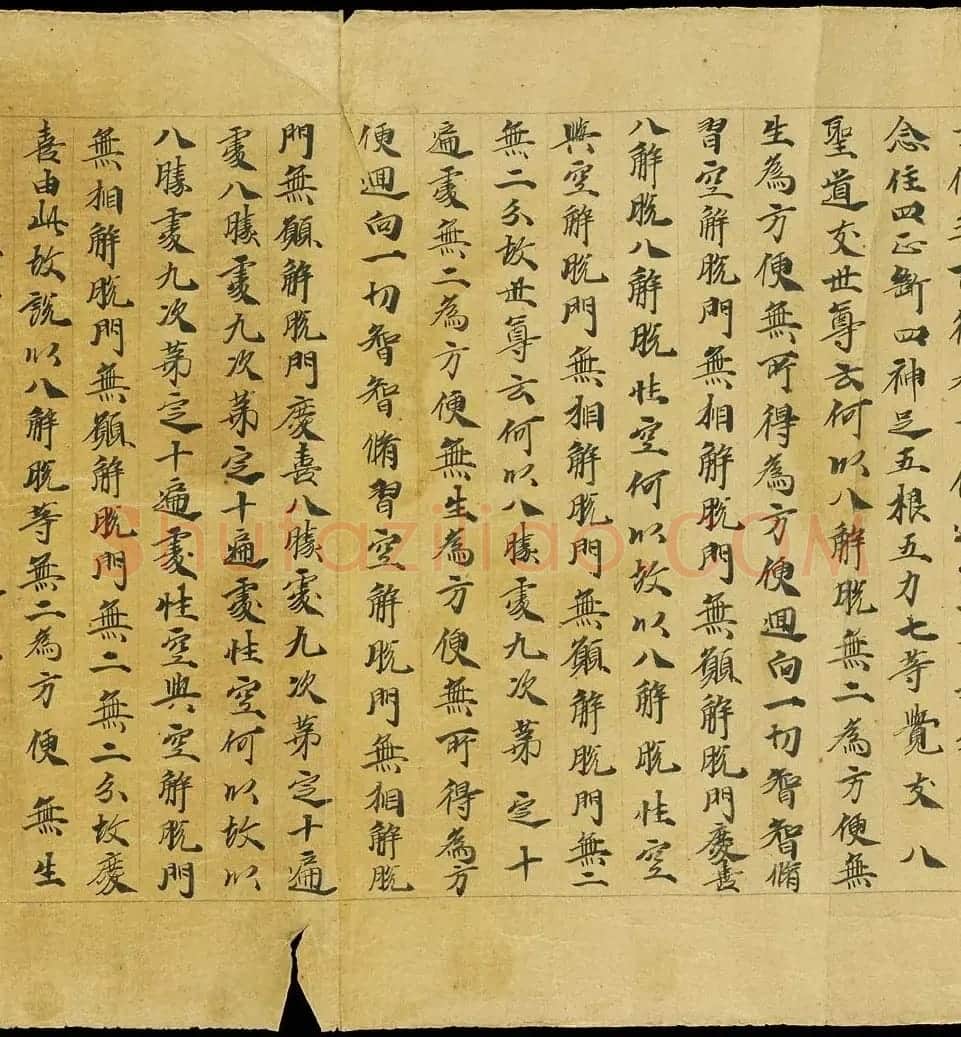 念住四正斷四神足五根五力七等覺支八
聖道支世尊云何以八解脫無二為方便無
生為方便無所得為方便迴向一切智智脩
習空解脫門無相解脫門無願解脫門慶喜
八解脫八解脫性空何以故以八解脫性空
與空解脫門無相解脫門無願解脫門無二
無二分故世尊云何以八勝處九次第定十
遍處無二為方便無生為方便無所得為方
便迴向一切智智脩習空解脫門無相解脫
門無願解脫門慶喜八勝處九次第定十遍
處八勝處九次第定十遍處性空何以故以
八勝處九次第定十遍處性空與空解脫門
無相解脫門無願解脫門無二無二分故慶
喜由此故說以八解脫等無二為方便無生
Shufaziliao.COM